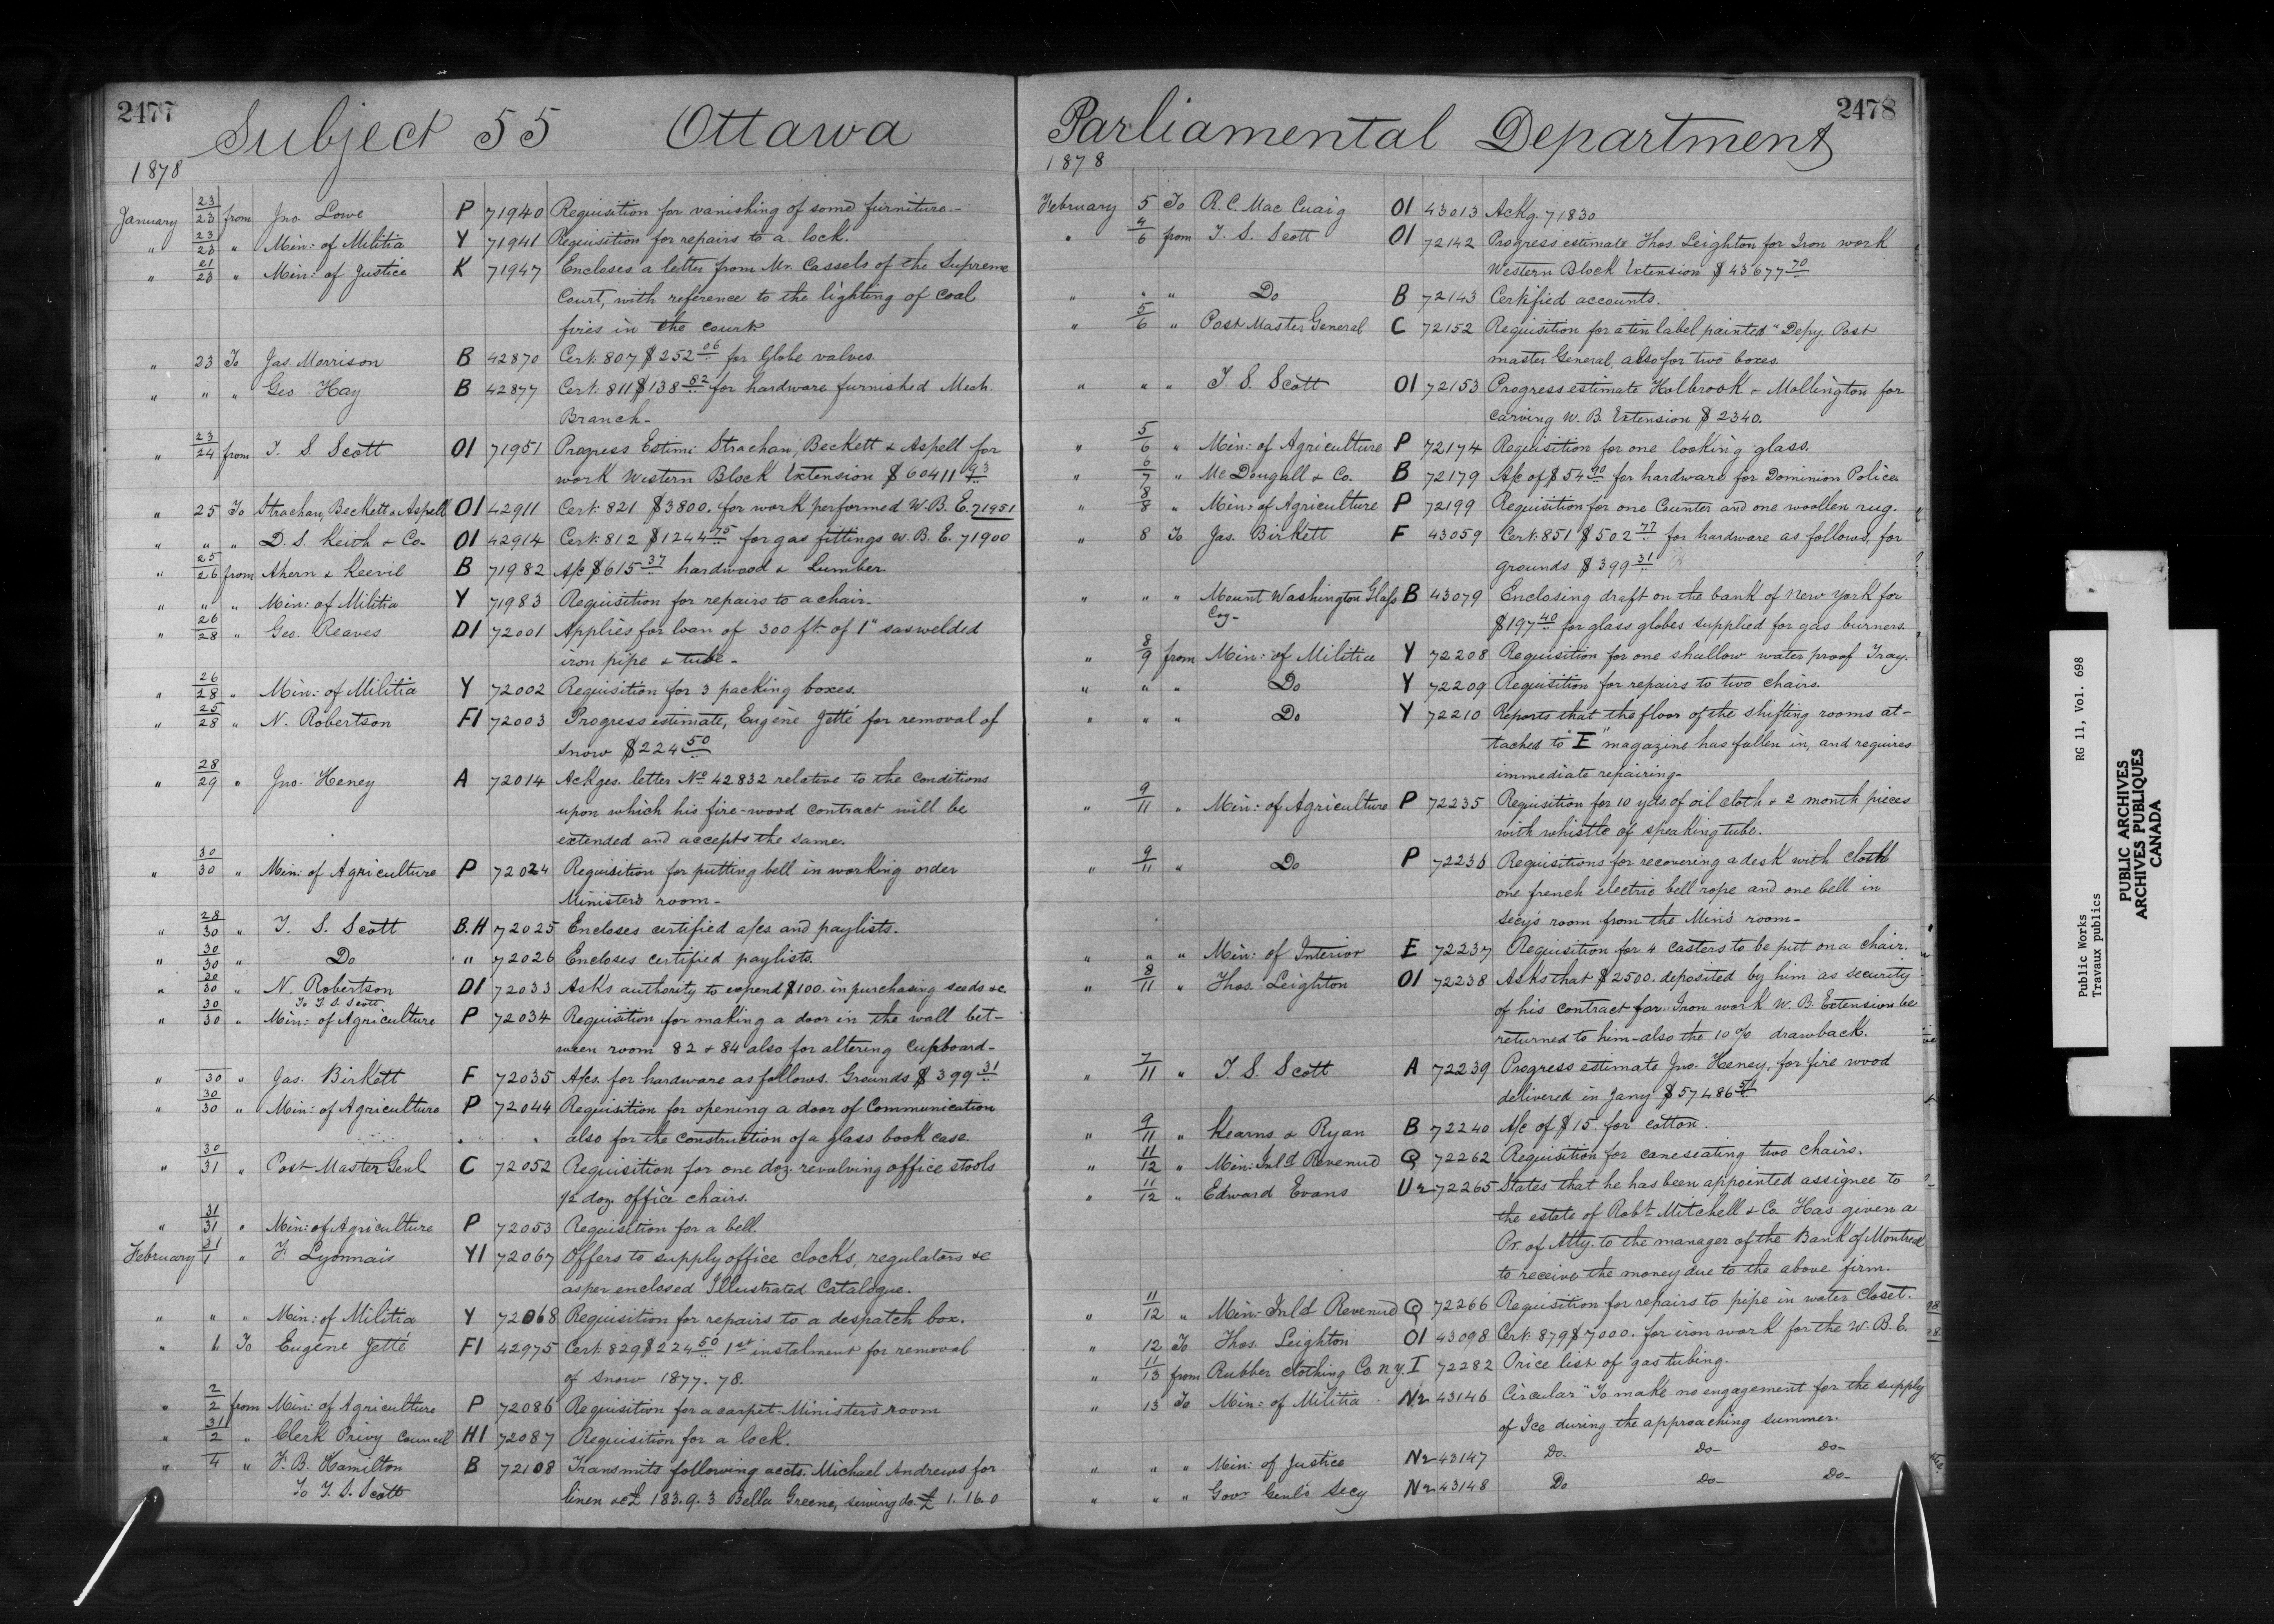 2477
Subject 55 Ottawa
1878
January 23/23 from Jno. Lowe P 71940 Requisition for vanishing of some furniture.-
" 23/23 " Min: of Militia Y 71941 Requisition for repairs to a lock.
" 21/23 " Min: of Justice K 71947 Encloses a letter from Mr. Cassels of the Supreme
Court, with reference to the lighting of coal
fires in the court
" 23 To Jas. Morrison B 42870 Cert. 807 $252 06 for Globe valves.
" " " Geo. Hay B 42877 Cert. 811 $138 82 for hardware furnished Mech.
Branch-
" 23/24 from T. S. Scott O1 71951 Progress Estim: Strachan, Beckett & Aspell for
work Western Block Extension $60411 43
" 25 To Strachan, Beckett & Aspell O1 42911 Cert. 821 $3800. for work performed W.B.E. 71951
" " " D. S. Keith & Co- O1 42914 Cert. 812 $1244 75 for gas fittings W.B.E. 71900
" 25/26 from Ahern & Keevil B 71982 A/c $615 37 hardwood & Lumber.
" " " Min: of Militia Y 71983 Requisition for repairs to a chair.
" 26/28 " Geo. Reaves D1 72001 Applies for loan of 300 ft. of 1" saswelded
iron pipe & tube-
" 26/28 " Min: of Militia Y 72002 Requisition for 3 packing boxes.
" 25/28 " N. Robertson F1 72003 Progress estimate, Eugène Jetté for removal of
snow $224 50
" 28/29 " Jno. Heney A 72014 Ackges. letter No 42832 relative to the conditions
upon which his fire-wood contract will be
extended and accepts the same.
" 30/30 " Min: of Agriculture P 72024 Requisition for putting bell in working order
Minister's room-
" 28/30 " T. S. Scott B.H 72025 Encloses certified a/cs and paylists.
" 30/30 " Do " " 72026 Encloses certified paylists.
" 30/30 " N. Robertson D1 72033 Asks authority to expend $100. in purchasing seeds &c.
To T. S. Scott
" 30/30 " Min: of Agriculture P 72034 Requisition for making a door in the wall bet-
ween room 82 & 84 also for altering Cupboard-
" 30 " Jas. Birkett F 72035 A/cs. for hardware as follows. Grounds $399 31
" 30/30 " Min: of Agriculture P 72044 Requisition for opening a door of Communication
also for the construction of a glass book case.
" 30/31 " Post Master Genl C 72052 Requisition for one doz. revolving office stools
1/2 doz. office chairs.
" 31/31 " Min: of Agriculture P 72053 Requisition for a bell
February 31/1 " F. Lyonnais Y1 72067 Offers to supply office clocks, regulators &c
as per enclosed Illustrated Catalogue.
" " " Min: of Militia Y 72068 Requisition for repairs to a despatch box.
" 1. To Eugène Jetté F1 42975 Cert. 829 $224 50 1st instalment for removal
of snow 1877.78.
" 2/2 from Min: of Agriculture P 72086 Requisition for a carpet-Minister's room
" 31/2 " Clerk Privy Council H1 72087 Requisition for a lock.
" 4 " F. B. Hamilton B 72108 Transmits following accts. Michael Andrews for
To T. S. Scott linen &c £183.9.3 Bella Greene, sewing do. £1.16.0
2478
Parliamental Department
1878
February 5 To R. C. Mac Cuaig O1 43013 Ackg. 71830
" 4/6 from T. S. Scott O1 72142 Progress estimate Thos. Leighton for Iron work
Western Block Extension $43677 70
" " " Do B 72143 Certified accounts.
" 5/6 " Post Master General C 72152 Requisition for a tin label painted "Depy. Post
master General, also for two boxes.
" " " T. S. Scott O1 72153 Progress estimate Holbrook & Mollington for
carving W. B. Extension $2340.
" 5/6 " Min: of Agriculture P 72174 Requisition for one looking glass.
" 6/7 " McDougall & Co. B 72179 A/c of $54 90 for hardware for Dominion Police
" 8/8 " Min: of Agriculture P 72199 Requisition for one Counter and one woollen rug.
" 8 To Jas. Birkett F 43059 Cert. 851 $502 77 for hardware as follows, for
grounds $399 31
" " " Mount Washington Glass B 43079 Enclosing draft on the bank of New York for
Coy- $197 40 for glass globes supplied for gas burners.
" 8/9 from Min: of Militia Y 72208 Requisition for one shallow water proof Tray.
" " " Do Y 72209 Requisition for repairs to two chairs.
" " " Do Y 72210 Reports that the floor of the shifting rooms at-
tached to "E" magazine has fallen in, and requires
immediate repairing-
" 9/11 " Min: of Agriculture P 72235 Requisition for 10 yds. of oil cloth & 2 month pieces
with whistle of speaking tube.
" 9/11 " Do P 72236 Requisitions for recovering a desk with cloth
one french electric bell rope and one bell in
Secy's room from the Min's room-
" " " Min: of Interior E 72237 Requisition for 4 casters to be put on a chair.
" 8/11 " Thos. Leighton O1 72238 Asks that $2500. deposited by him as security
of his contract for Iron work W. B. Extension be
returned to him-also the 10% drawback.
" 7/11 " T. S. Scott A 72239 Progress estimate Jno. Heney, for fire wood
delivered in Jany $57486 51
" 9/11 " Kearns & Ryan B 72240 A/c of $15. for cotton.
" 11/12 " Min: Inld Revenue Q 72262 Requisition for caneseating two chairs.
" 11/12 " Edward Evans U2 72265 States that he has been appointed assignee to
the estate of Robt. Mitchell & Co Has given a
Pr. of Atty. to the manager of the Bank of Montreal
to receive the money due to the above firm.
" 11/12 " Min: Inld Revenue Q 72266 Requisition for repairs to pipe in water closet.
" 12 To Thos. Leighton O1 43098 Cert. 879 $7000. for iron work for the W.B.E.
" 11/13 from Rubber Clothing Co. N.Y. I 72282 Price list of gas tubing.
" 13 To Min: of Militia N2 43146 Circular "To make no engagement for the supply
of Ice during the approaching summer.
" " " Min: of Justice N2 43147 Do. Do- Do-
" " " Govr Genl's Secy N2 43148 Do Do- Do-
Public Works RG 11, Vol. 698
Travaux publics
PUBLIC ARCHIVES
ARCHIVES PUBLIQUES
CANADA